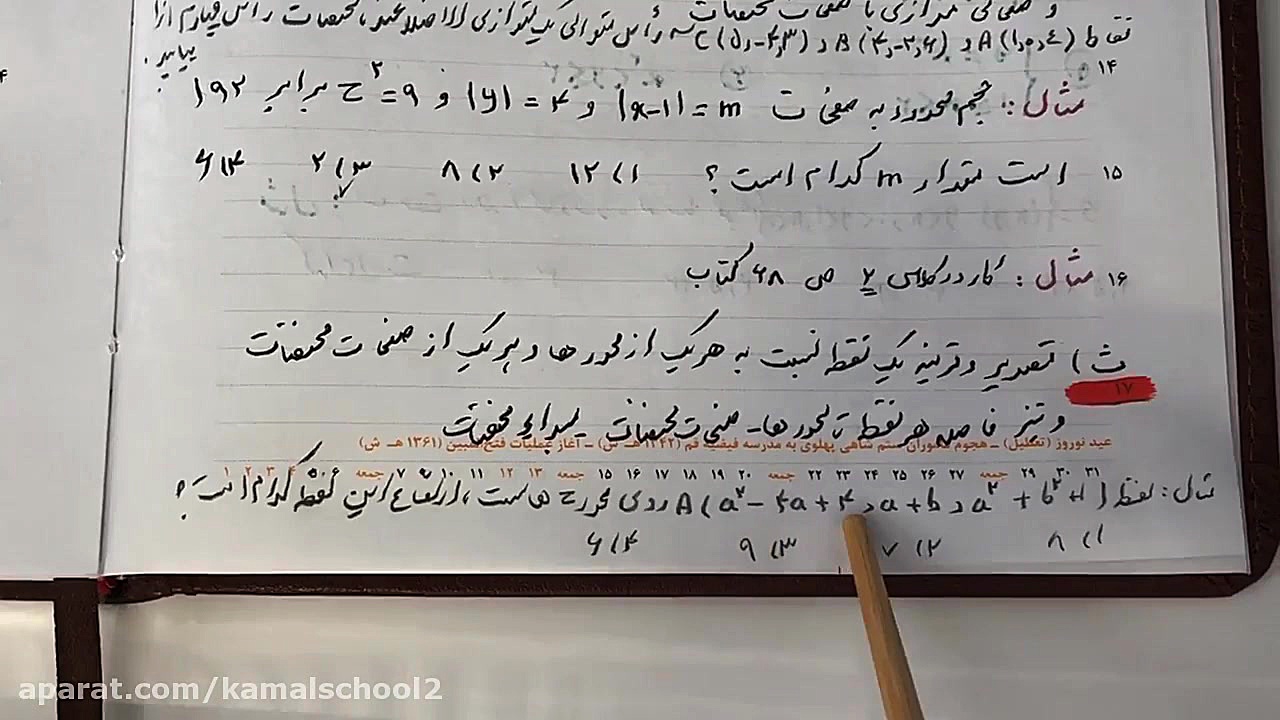 و صفحاتی موازی با صفحات مختصات
نقاط A(۱,۰,٤) و B(۴,-۲,۶) و C(۵,-۴,۳) سه رأس متوالی یک متوازی الاضلاع‌اند، مختصات رأس چهارم را
بیابید.
۱۴
مثال: حجم محدود به صفحات |x-1| = m و |y| = ۴ و z² = ۹ برابر ۱۹۲
۱۵
است مقدار m کدام است؟ ۱) ۱۲ ۲) ۸ ۳) ۲ ۴) ۶
۱۶
مثال: کار در کلاس ۲ ص ۶۸ کتاب
ث) تصویر و قرینه یک نقطه نسبت به هر یک از محورها و هر یک از صفحات مختصات
۱۷
و نیز فاصله هر نقطه تا محورها - صفحات مختصات - مبداء مختصات
عید نوروز (تعطیل) – هجوم ماموران ستم شاهی پهلوی به مدرسه فیضیه قم (۱۳۴۲هـ ش) – آغاز عملیات فتح المبین (۱۳۶۱ هـ ش)
۱ ۲ ۳ ۴ ۵ ۶ جمعه ۷ ۱۰ ۱۱ ۱۲ ۱۳ جمعه ۱۵ ۱۶ ۱۷ ۱۸ ۱۹ ۲۰ جمعه ۲۲ ۲۳ ۲۴ ۲۵ ۲۶ ۲۷ جمعه ۲۹ ۳۰ ۳۱
مثال: نقطه A(a² - ۴a + ۴ , a + b , a² + b² + ۱) روی محور z هاست، ارتفاع این نقطه کدام است؟
۱) ۸ ۲) ۷ ۳) ۹ ۴) ۶
aparat.com/kamalschool2